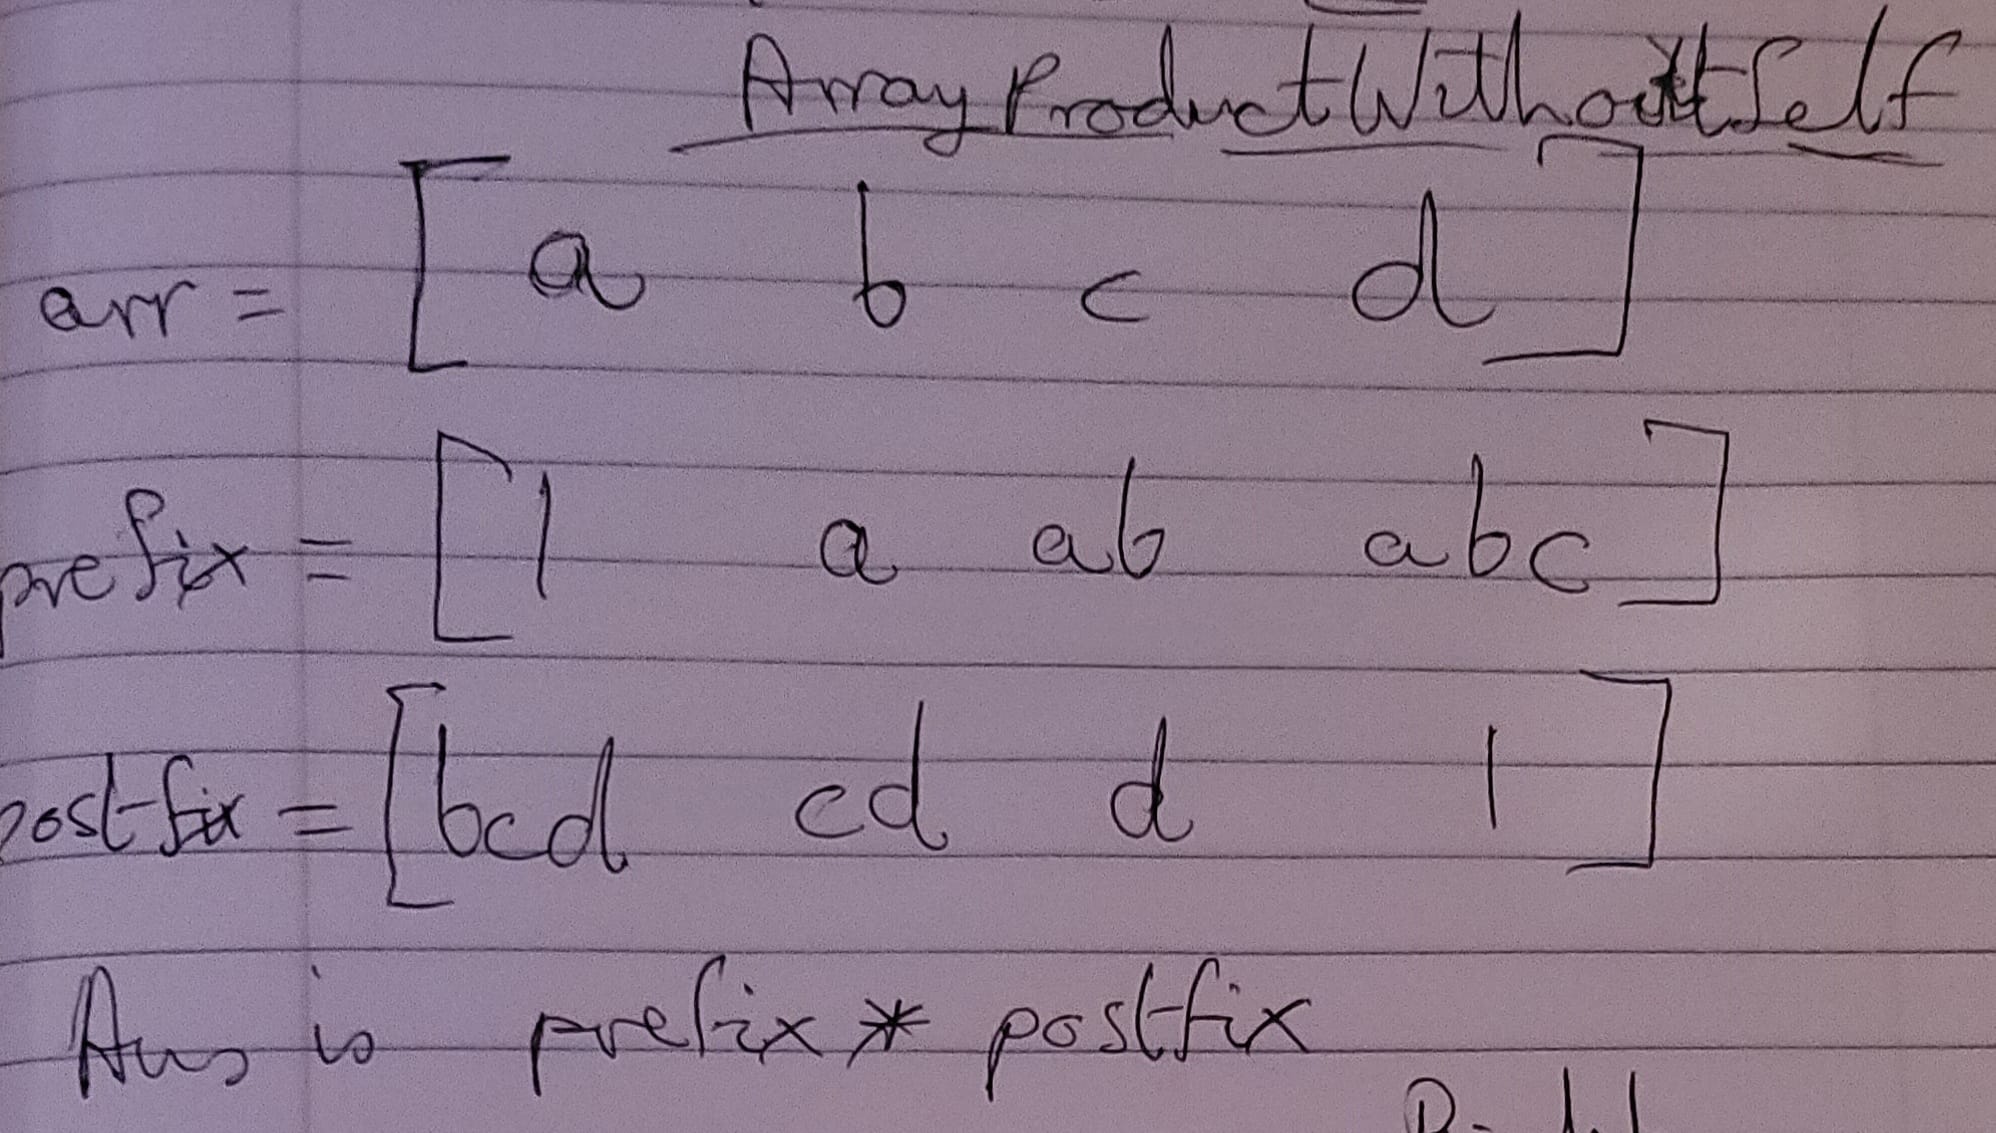 ArrayProductWithoutSelf
arr = [ a b c d ]
prefix = [ 1 a ab abc ]
postfix = [ bcd cd d 1 ]
Ans is prefix * postfix